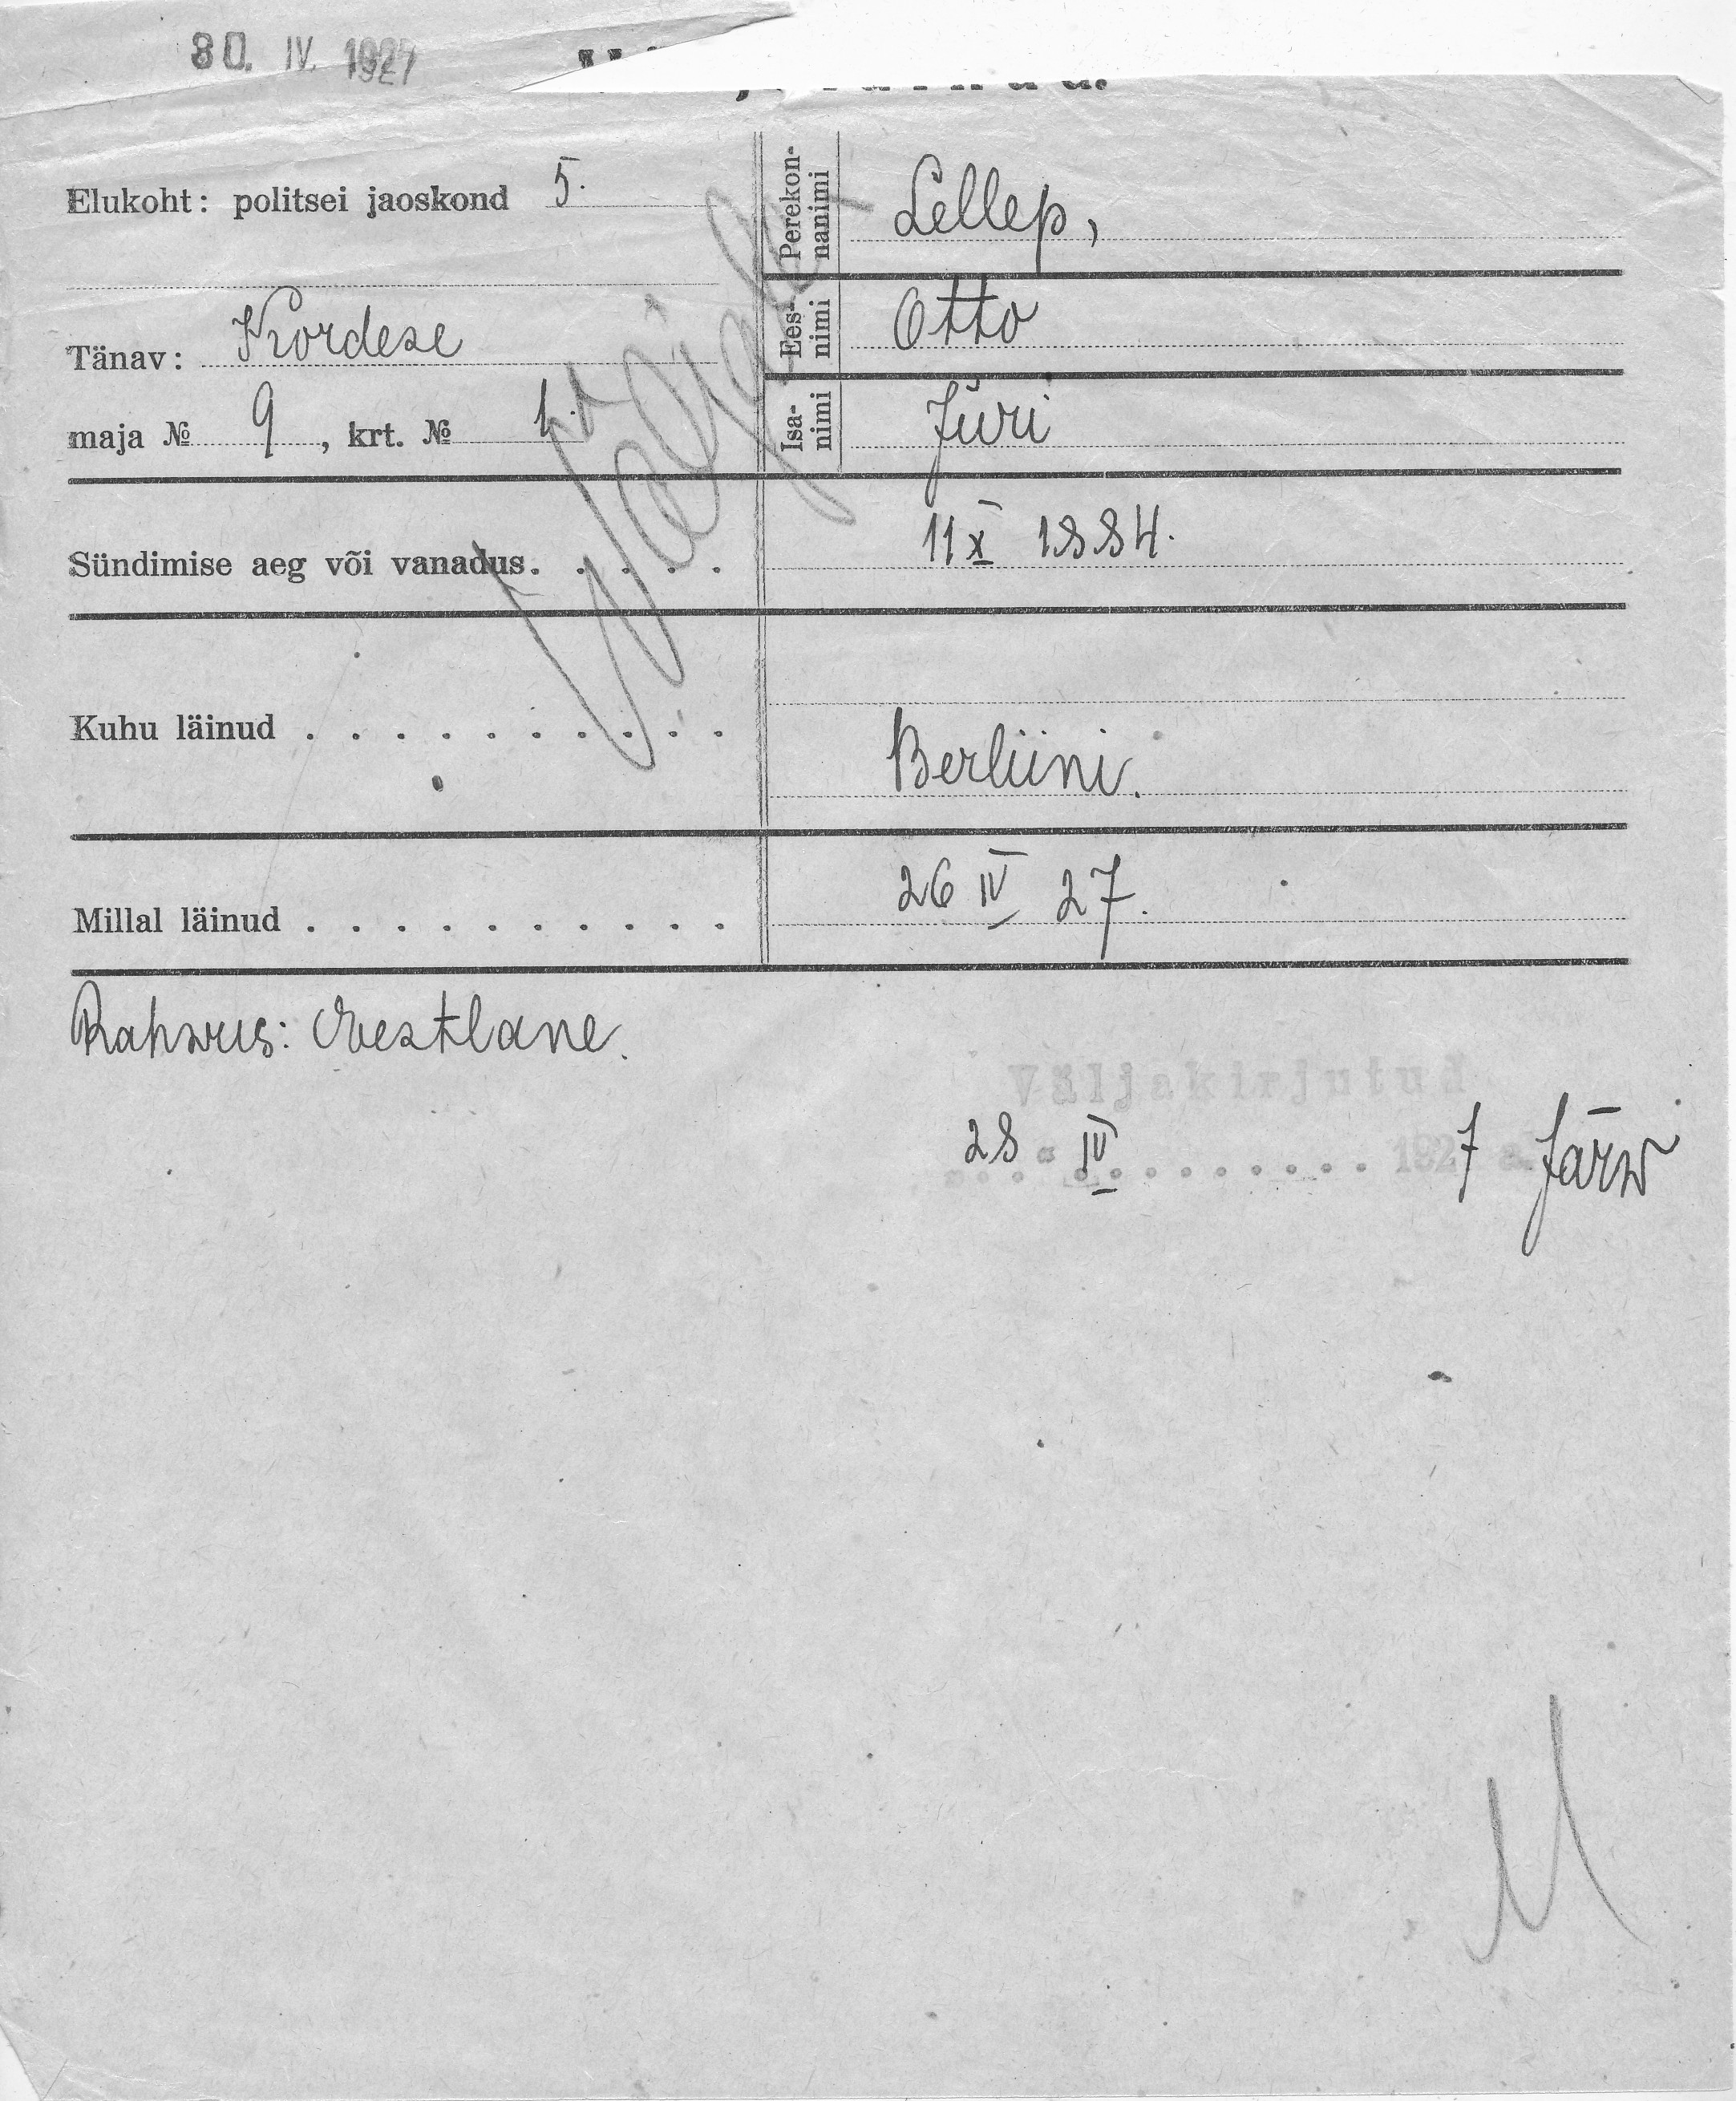 30. IV. 1927
Elukoht: politsei jaoskond 5.
Tänav: Kordese
maja № 9, krt. № 1.
Perekon-
nanimi
Lellep,
Ees-
nimi
Otto
Isa-
nimi
Jüri
Sündimise aeg või vanadus. . . . . 11 X 1884.
Kuhu läinud . . . . . . . . . . Berliini.
Millal läinud . . . . . . . . . . 26 IV 27.
Rahwus: Eestlane.
Väljakirjutud
28 IV 1927 a. Järw